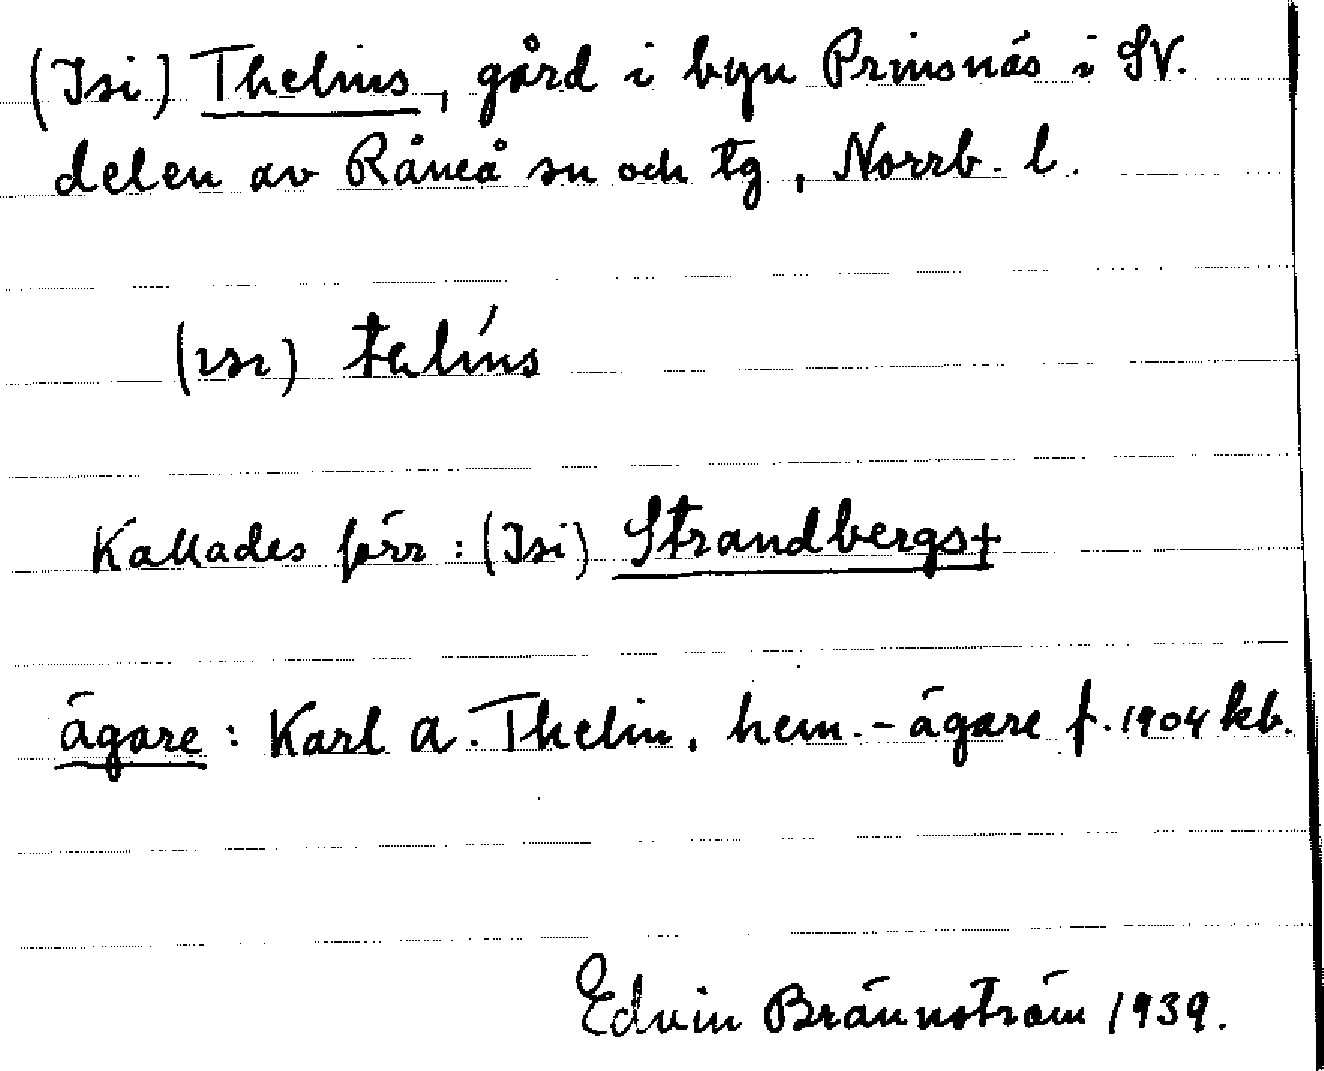 (Isi) Thelins, gård i byn Prinsnäs i SV.
delen av Råneå sn och tg, Norrb. l.
(ɪsɪ) telíns
Kallades förr: (Isi) Strandbergs+
ägare: Karl A. Thelin, hem.-ägare f. 1904 kb.
Edvin Brännström 1939.